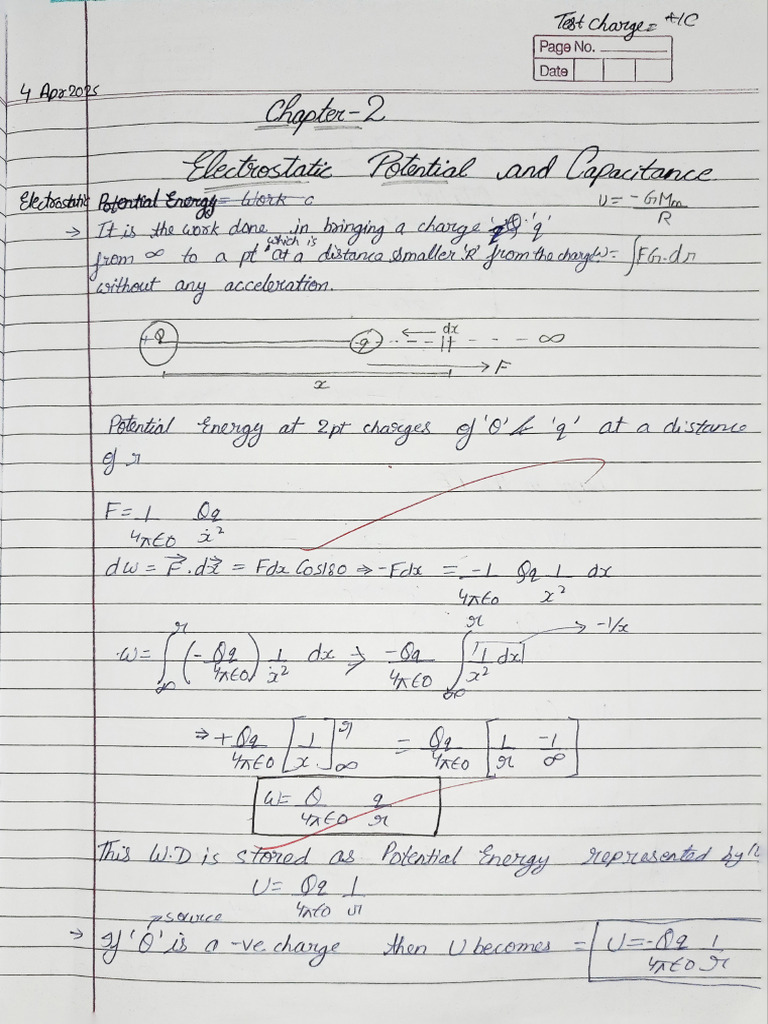 Test charge = +1C
Page No.
Date
4 Apr 2025
Chapter-2
Electrostatic Potential and Capacitance
Electrostatic Potential Energy = Work
U = -GMm / R
→ It is the work done in bringing a charge 'q'
from ∞ to a pt which is at a distance smaller 'R' from the charge W = ∫FG.dr
without any acceleration.
+Q q dx ∞
→ F
x
Potential Energy at 2pt charges of 'Q' & 'q' at a distance
of r
F = 1/4πε0 Qq/x²
dw = F⃗.dx⃗ = Fdx Cos180 ⇒ -Fdx = -1/4πε0 Qq 1/x² dx
W = ∫∞^r (-Qq/4πε0) 1/x² dx ⇒ -Qq/4πε0 ∫∞^r 1/x² dx → -1/x
⇒ +Qq/4πε0 [1/x]∞^r = Qq/4πε0 [1/r -1/∞]
W = Q/4πε0 q/r
This W.D is stored as Potential Energy represented by
U = Qq/4πε0 1/r
→ source
→ If 'Q' is a -ve charge then U becomes = U = -Qq/4πε0 1/r